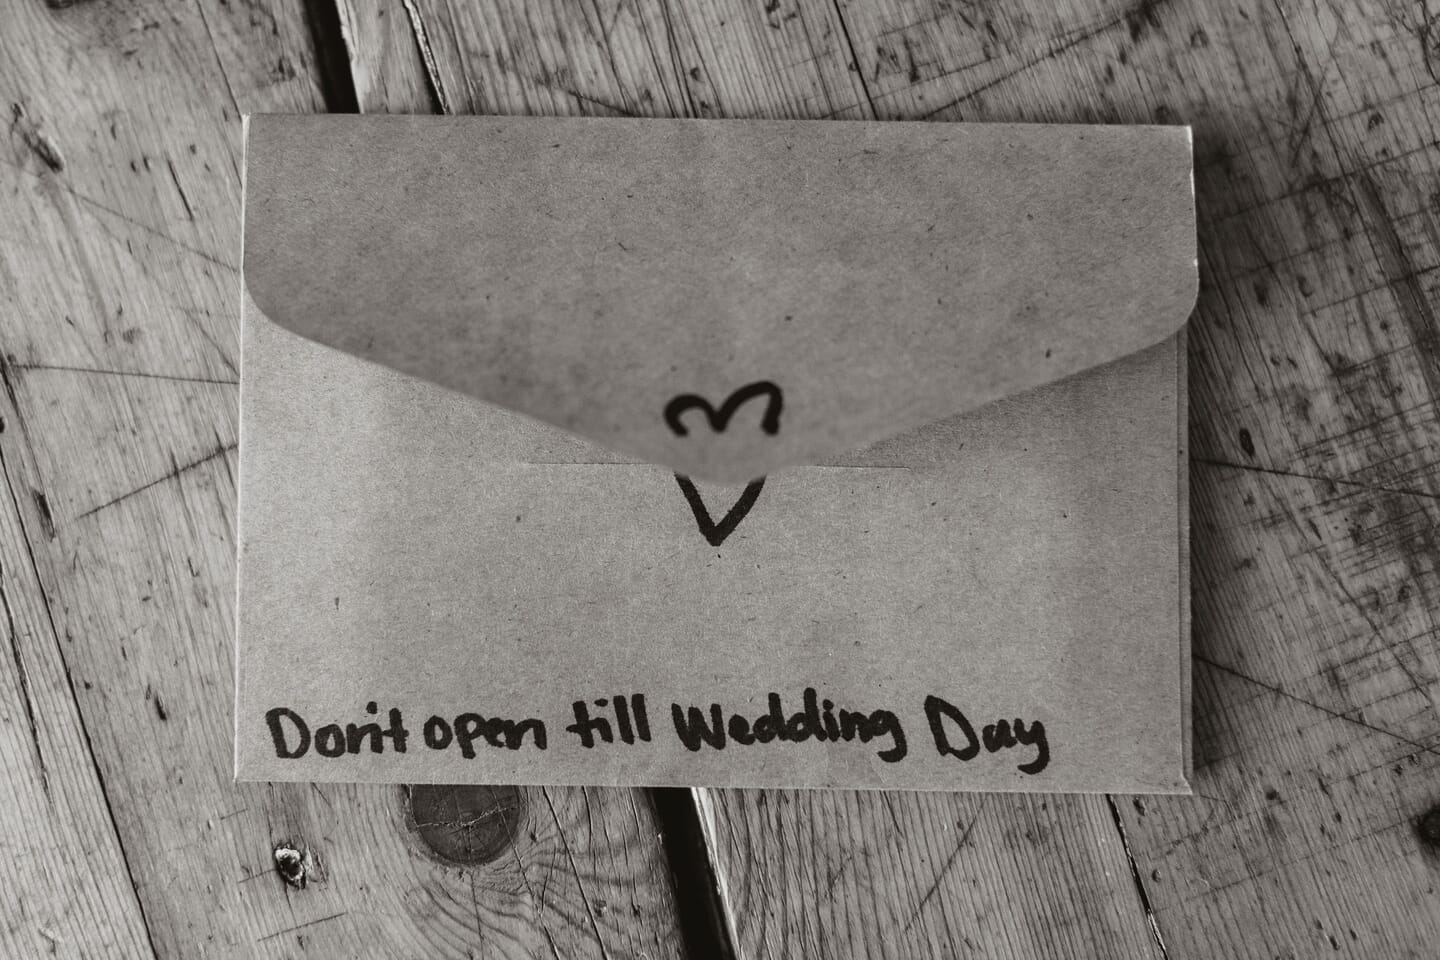 Don't open till Wedding Day